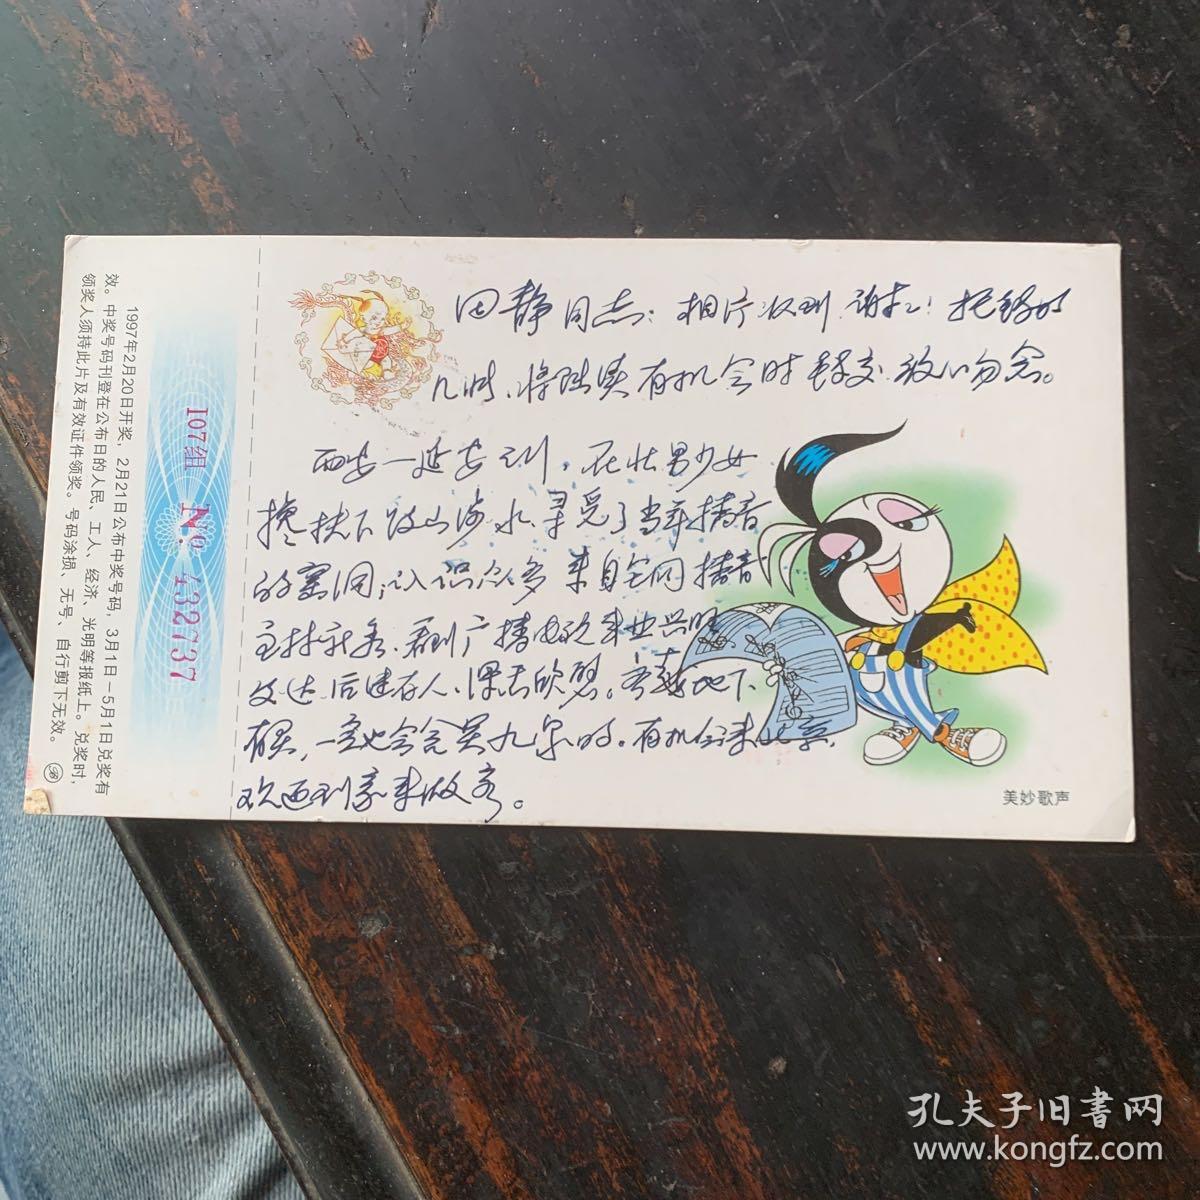 1997年2月20日开奖，2月21日公布中奖号码，3月1日－5月1日兑奖有
效。中奖号码刊登在公布日的人民、工人、经济、光明等报纸上。兑奖时，
领奖人须持此片及有效证件领奖。号码涂损、无号、自行剪下无效。
107组 No 432737
田静同志：相片收到 谢谢！托转的
几帧、将陆续有机会时转交 放心勿念。
西安—延安之行，在壮男少女
搀扶下 跋山涉水 寻觅了当年播音
的窑洞，认识众多来自全国播音
主持 新秀，看到广播电视事业兴旺
发达 后继有人、深感欣慰。齐越地下
有灵，一定也会含笑九泉的。有机会来北京，
欢迎到家来做客。
美妙歌声
孔夫子旧書网
www.kongfz.com